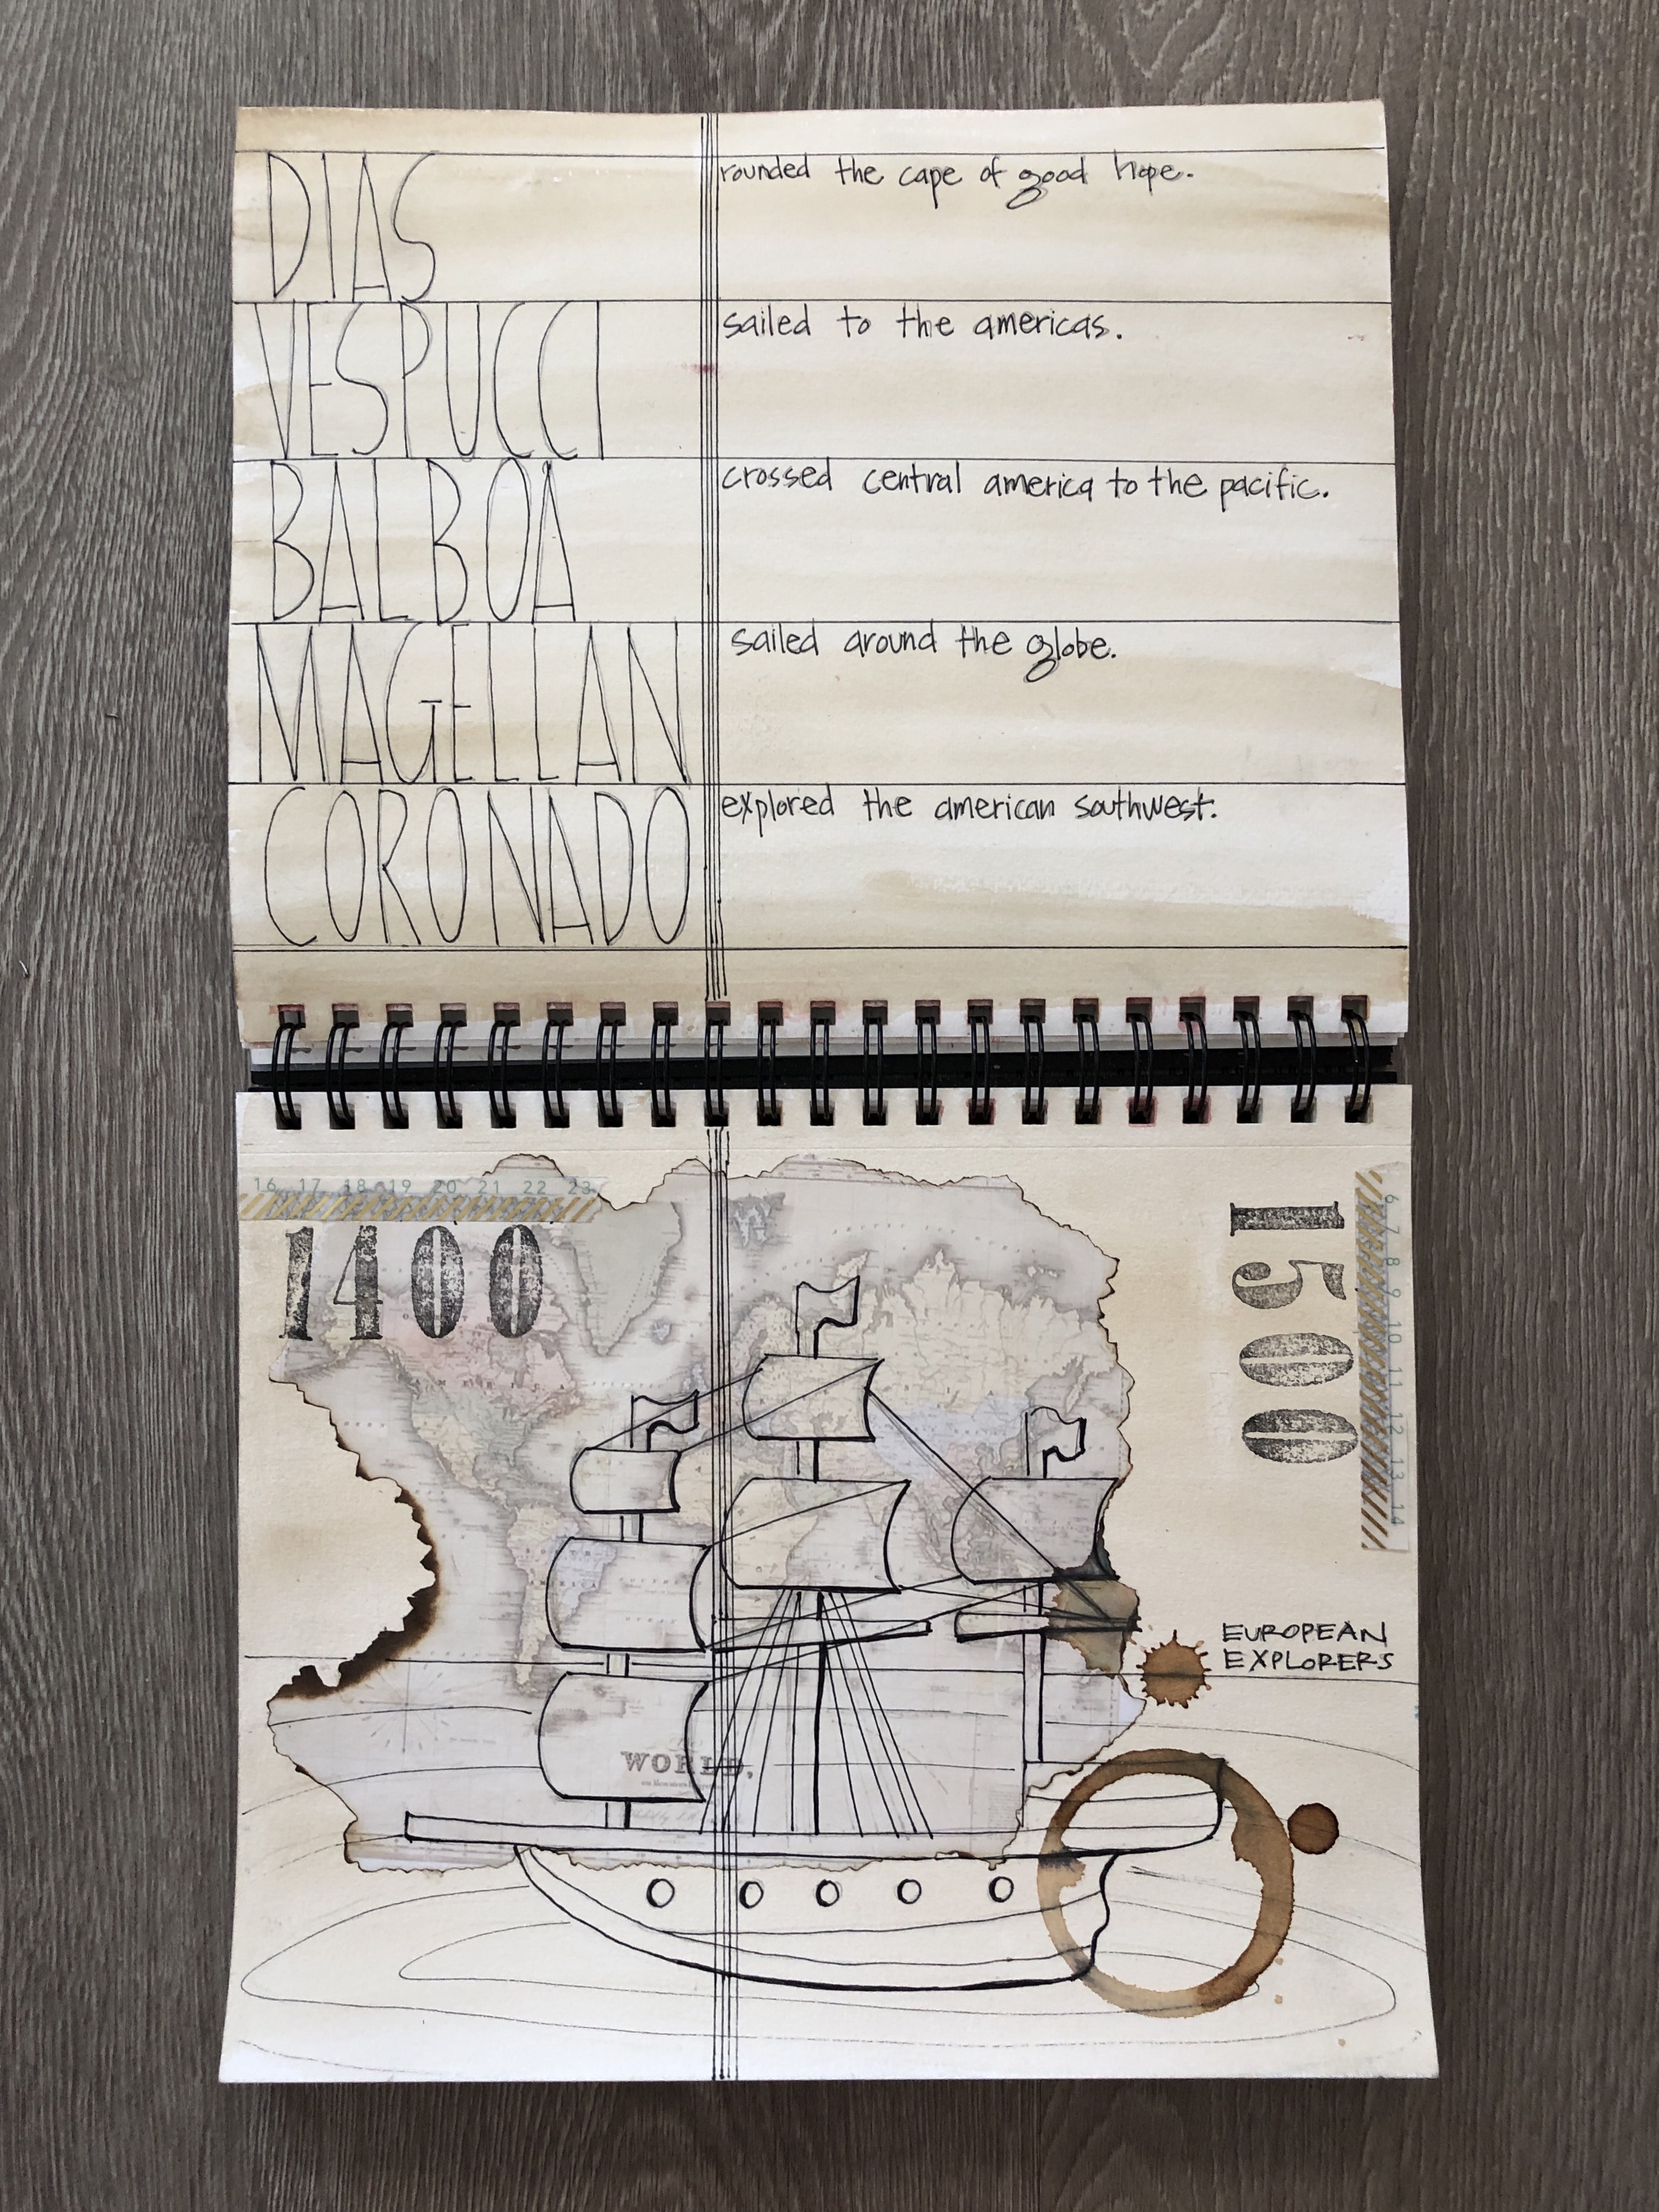 DIAS rounded the cape of good hope.
VESPUCCI sailed to the americas.
BALBOA crossed central america to the pacific.
MAGELLAN sailed around the globe.
CORONADO explored the american southwest.
16 17 18 19 20 21 22 23
1400
1500
6 7 8 9 10 11 12 13 14
EUROPEAN
EXPLORERS
WORLD,